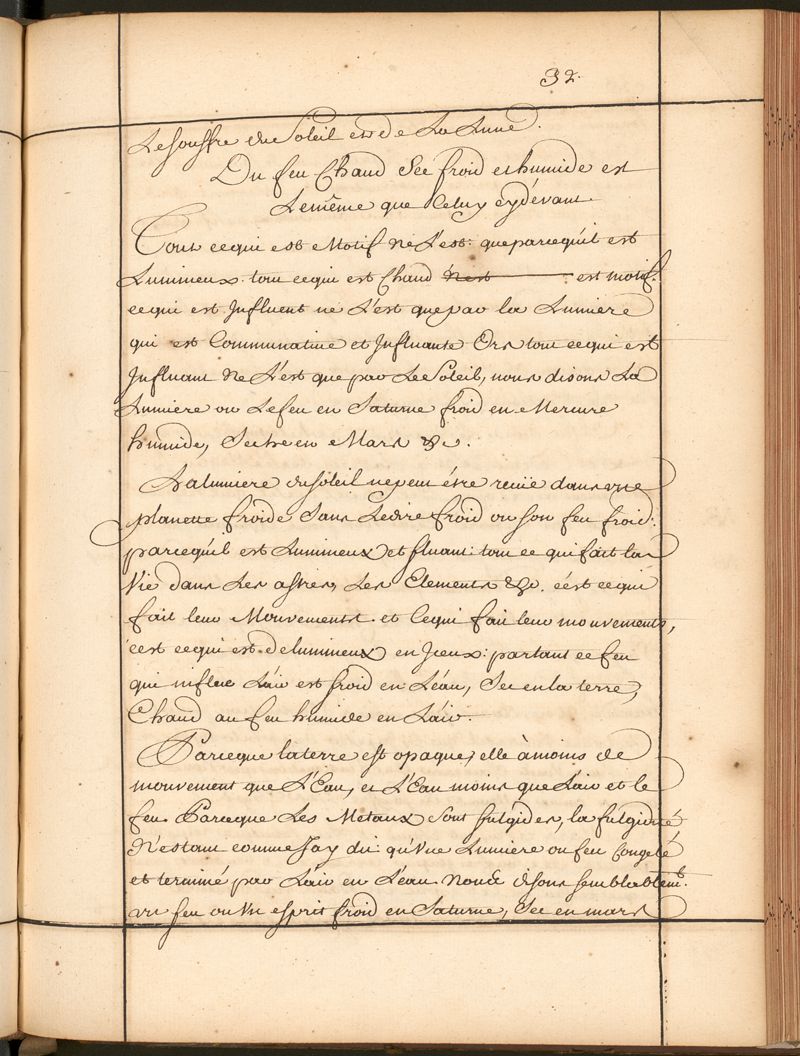 32.
Le souffre du Soleil et de La Lune.
Du feu Chaud Sec froid et humide est
Le même que Celuy cydevant
Tout cequi est Motif ne L'est: que parcequ'il est
Lumineux. tout cequi est Chaud n'est est motif.
cequi est Influent ne L'est que par la Lumiere
qui est Communicative et Influante Ors tout cequi est
Influant Ne L'est que par Le Soleil, nous disons La
Lumiere ou Le feu en Saturne froid en Mercure
humide, Seche en Mars &c.
La lumiere du soleil ne peut être reçüe dans une
planette froide Sans Le dire froid ou son feu froid:
parcequ'il est Lumineux et fluant: tout ce qui fait la
Vie dans Les astres, Les Elements &c. c'est cequi
fait leur Mouvements. et Cequi fait leur mouvements,
c'est cequi est de lumineux en Jceux: partant ce feu
qui influe L'air est froid en L'eau, Sec en la terre,
Chaud au feu humide en L'air.
Parceque la terre est opaque, elle à moins de
mouvement que L'Eau, et L'Eau moins que L'air et le
feu. Parceque Les Metaux Sont fulgides, la fulgidité
N'estant comme J'ay dit: qu'Vne Lumiere ou feu Congelé
et terminé par L'air en L'eau. Nous disons semblablemt.
un feu ou Vn esprit froid en Saturne, Sec en mars